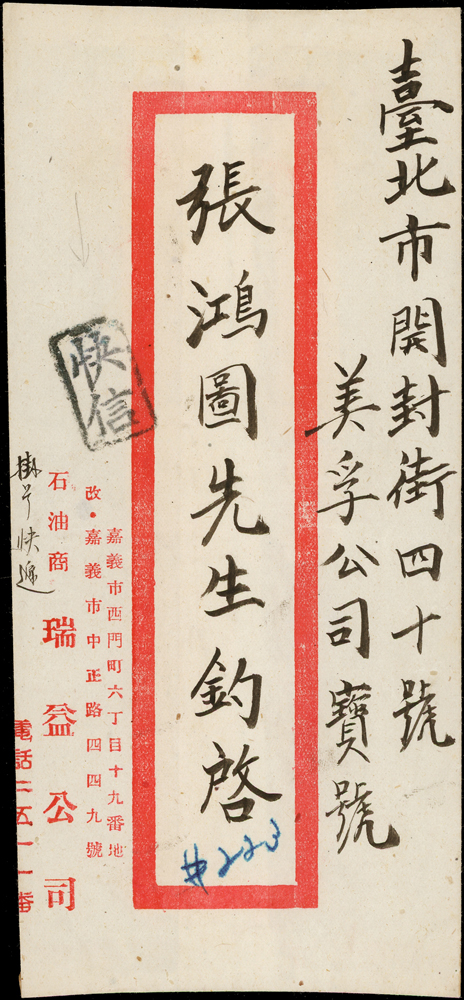 臺北市開封街四十號
美孚公司寶號
張鴻圖先生鈞啓
#223
快信
嘉義市西門町六丁目十九番地
改・嘉義市中正路四四九號
石油商 瑞益公司
電話二五一一番
掛号快遞